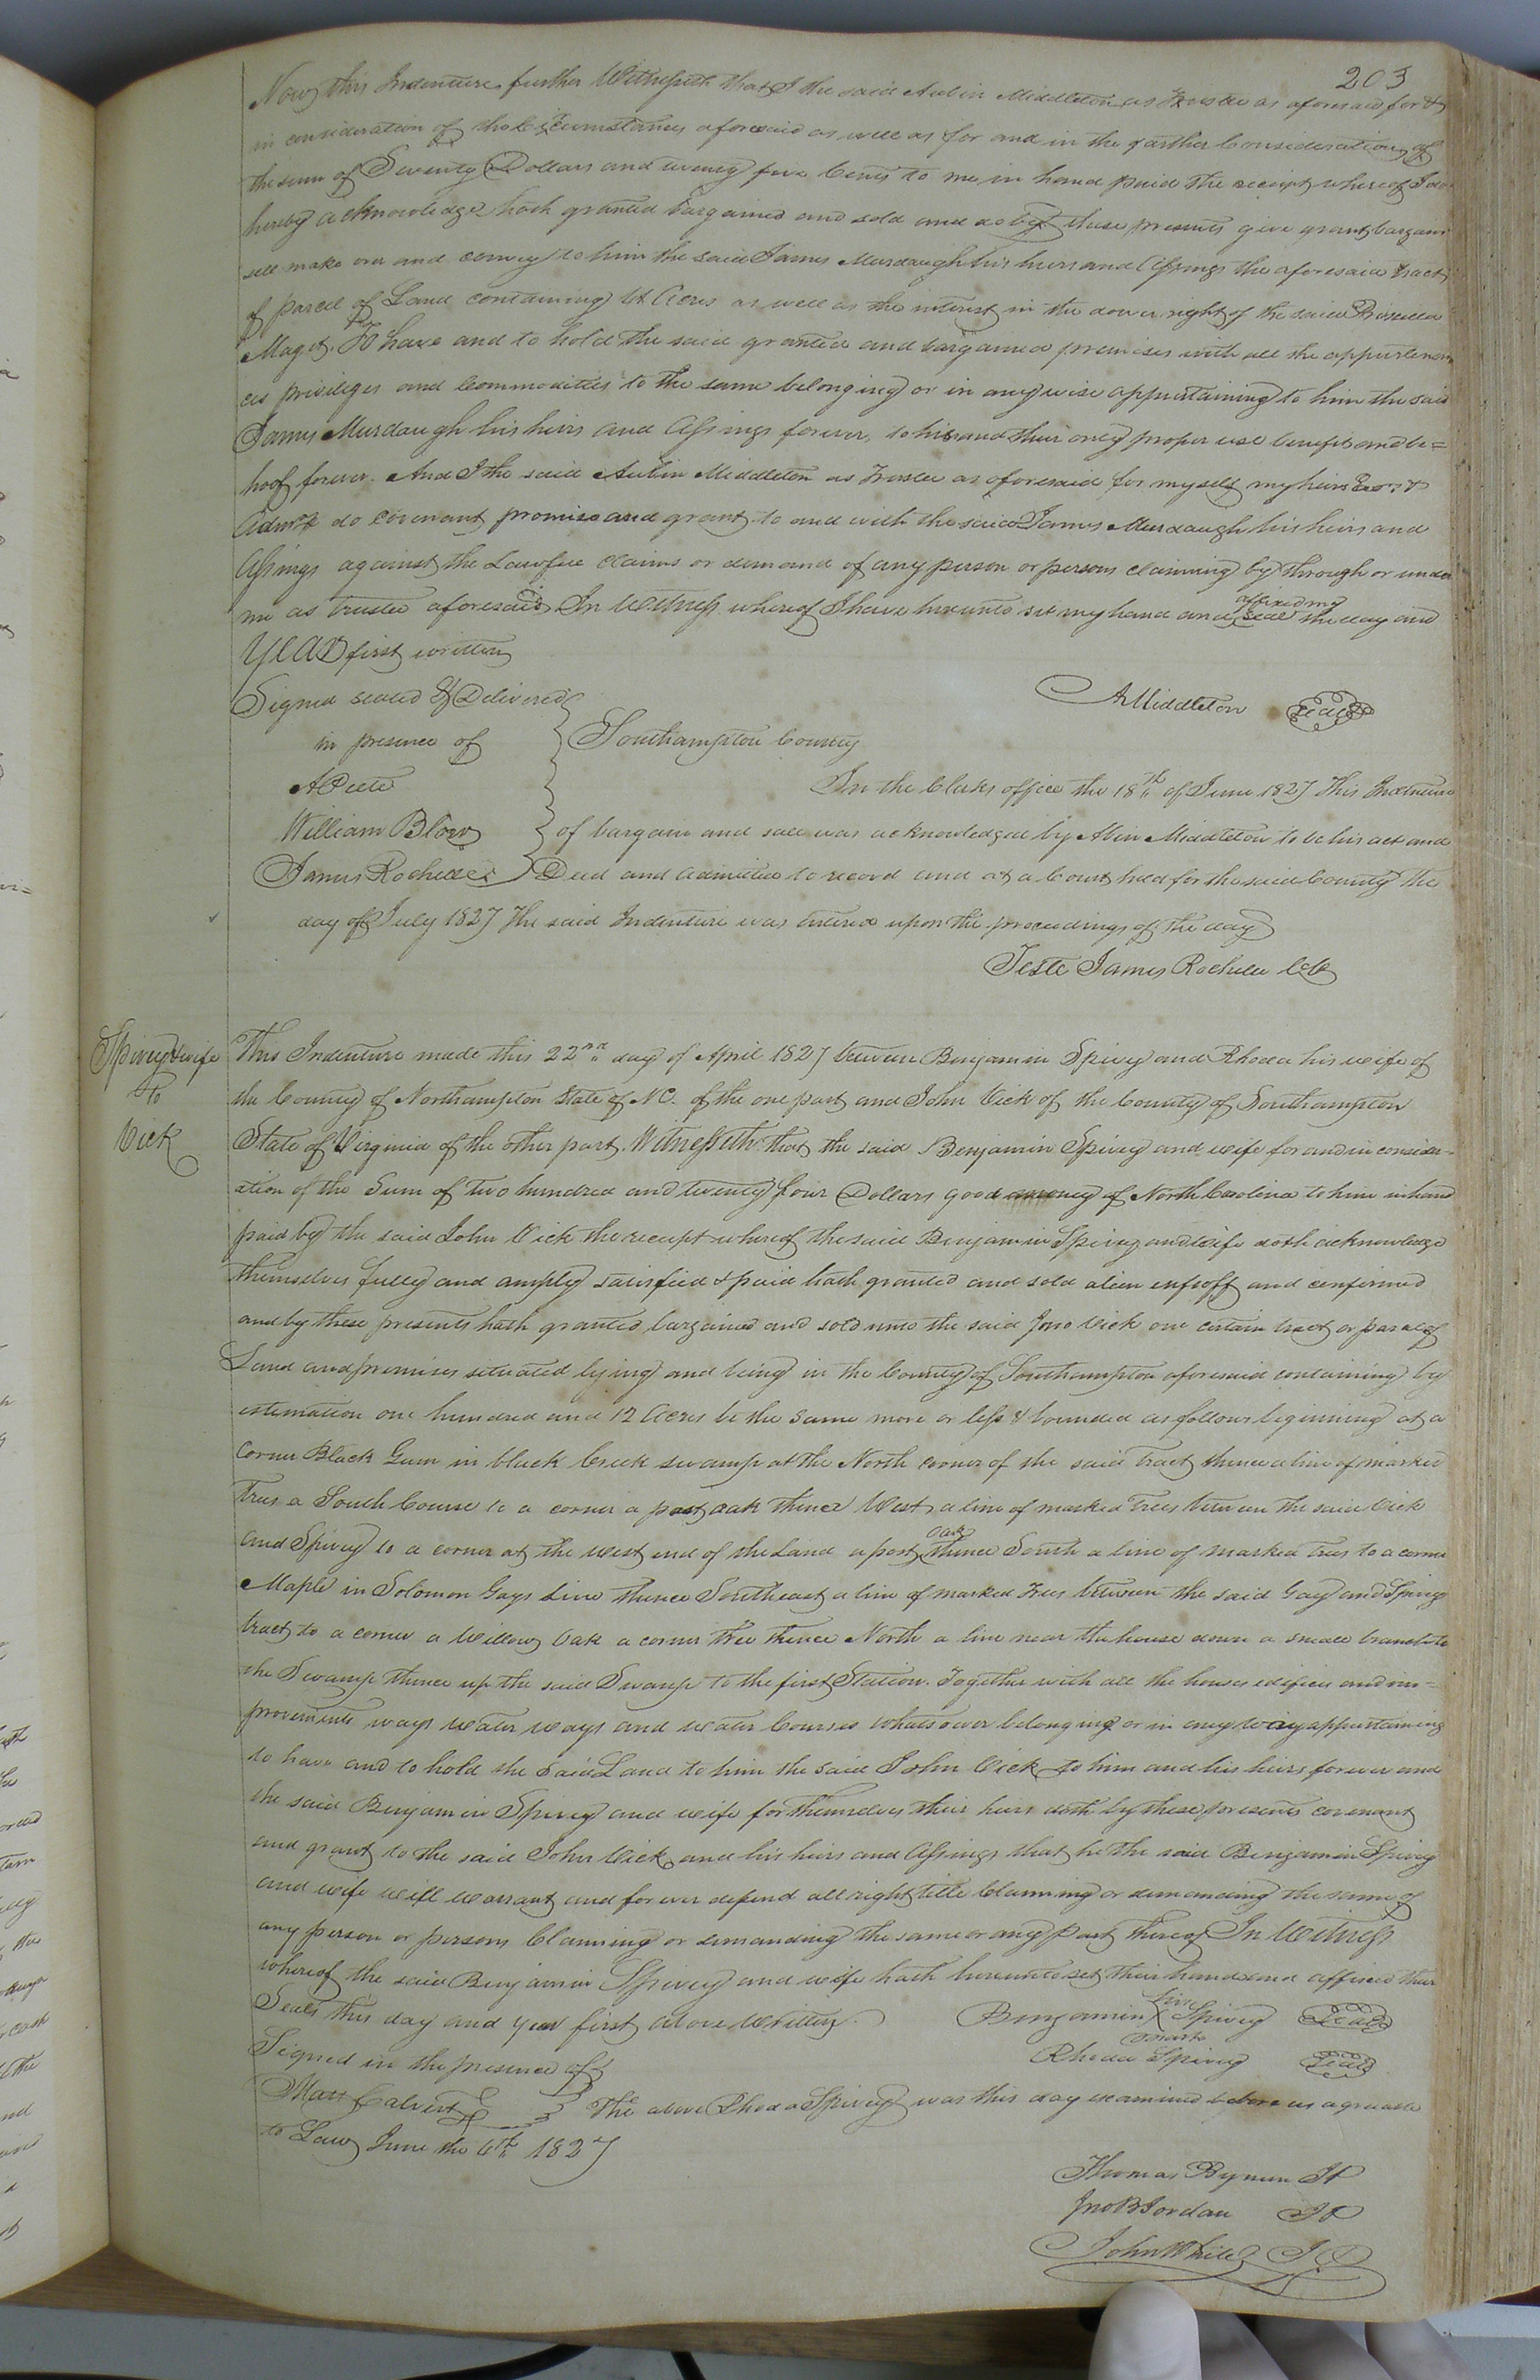 203
Now this Indenture further Witnesseth that I the said Aubin Middleton as Trustee as aforesaid for &
in consideration of the Circumstances aforesaid as well as for and in the farther Consideration of
the sum of Seventy Dollars and twenty five Cents to me in hand paid the receipt whereof I do
hereby acknowledge hath granted bargained and sold and do by these presents give grant bargain
sell make over and convey to him the said James Murdaugh his heirs and Assings the aforesaid tract
of parcel of Land containing Acres as well as the interest in the dower right of the said Priscilla
Maget. To have and to hold the said granted and bargained premises with all the appurtenan
ces privileges and Commodities to the same belonging or in any wise appertaining to him the said
James Murdaugh his heirs and Assings forever, to his and their only proper use benefit and be=
hoof forever. And I the said Aubin Middleton as Trustee as aforesaid for myself my heirs Exors &
Admrs do covenant promise and grant to and with the said James Murdaugh his heirs and
Assings against the Lawful Claims or demand of any person or persons claiming by through or under
me as trustee aforesaid In Witness whereof I have hereunto set my hand and affixed my seal the day and
year first written
Signed sealed & Delivered
AMiddleton Seal
in presence of
Southampton County
In the Clerks office the 18th of June 1827 This Indenture
William Blow
of bargain and sale was acknowledged by Abin Middleton to be his act and
James Rochelle
Deed and admitted to record and at a Court held for the said County the
day of July 1827 The said Indenture was entered upon the proceedings of the day
Teste James Rochelle
Spivey & wife
To
Vick
This Indenture made this 22nd day of April 1827 between Benjamin Spivey and Rhoda his wife of
the County of Northampton State of NC. of the one part and John Vick of the County of Southampton
State of Virginia of the other part. Witnesseth that the said Benjamin Spivey and wife for and in consider-
ation of the Sum of two hundred and twenty four Dollars good money of North Carolina to him in hand
paid by the said John Vick the receipt whereof the said Benjamin Spivey and wife doth acknowledge
themselves fully and amply satisfied & paid hath granted and sold alien enfeoff and confirmed
and by these presents hath granted bargained and sold unto the said Jno Vick one certain tract or parcel of
Land and premises situated lying and being in the County of Southampton aforesaid containing by
estimation one hundred and 12 Acres be the same more or less & bounded as follows beginning at a
Corner Black Gum in black Creek swamp at the North corner of the said tract thence a line of marked
Trees a South Course to a corner a post oak thence West a line of marked Trees between the said Vick
and Spivey to a corner at the west end of the Land a post Oak thence South a line of marked trees to a corner
Maple in Solomon Gays Line thence Southeast a line of marked Trees between the said Gay and Spivey
tract to a corner a Willow Oak a corner Tree thence North a line near the house down a small branch to
the Swamp thence up the said Swamp to the first Station. Together with all the houses edifices and im-
provements ways water ways and water Courses Whatsoever belonging or in any way appertaining
to have and to hold the said Land to him the said John Vick to him and his heirs forever and
the said Benjamin Spivey and wife for themselves their heirs doth by these presents covenant
and grant to the said John Vick and his heirs and Assings that he the said Benjamin Spivey
and wife will Warrant and forever defend all right title Claiming or demanding the same of
any person or persons Claiming or demanding the same or any Part thereof In Witness
whereof the said Benjamin Spivey and wife hath hereunto set their hands and affixed their
Seals this day and year first above Written
Benjamin his X Spivey Seal
mark
Signed in the presence of
Rhoda Spivey Seal
Matt Calvert
The above Rhoda Spivey was this day examined before us agreeable
to Law June the 6th 1827
Thomas Bynum JP
Jno B Jordan JP
John White JP